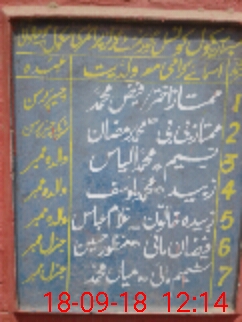 اسمائے گرامی مع ولدیت عہدہ
1 ممتاز اختر / فیض محمد چیئرپرسن
2 ممتاز بی بی / محمد رمضان
3 نسیم / محمد الیاس والدہ ممبر
4 زبیدہ / محمد یوسف والدہ ممبر
5 زبیدہ خاتون / غلام عباس والدہ ممبر
6 فیضان مائی / منظور حسین جنرل ممبر
7 شمیم بی بی / میاں محمد جنرل ممبر
18-09-18 12:14